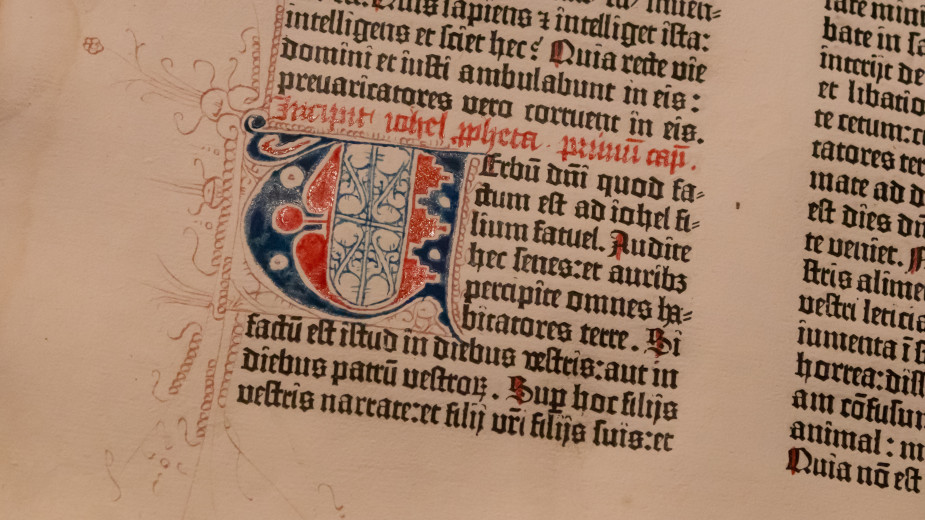 Quis sapiens ⁊ intelliget ista:
intelligens et sciet hec? Quia recte vie
domini et iusti ambulabunt in eis:
prevaricatores vero corruent in eis.
Incipit iohel ꝓpheta. primū cap̄.
Erbū dn̄i quod fa-
ctum est ad iohel fi-
lium fatuel. Audite
hec senes: et auribꝫ
percipite omnes ha-
bitatores terre. Si
factū est istud in diebus vestris: aut in
diebus patrū vestroꝝ. Suꝑ hoc filijs
vestris narrate: et filij vr̄i filijs suis: et
bate in
interijt de
et libatio
te
tatores
mate ad
est dies
te veniet.
stris
vestri leticia
iumenta ī
horrea:
am cōfusū
animal:
Quia nō est